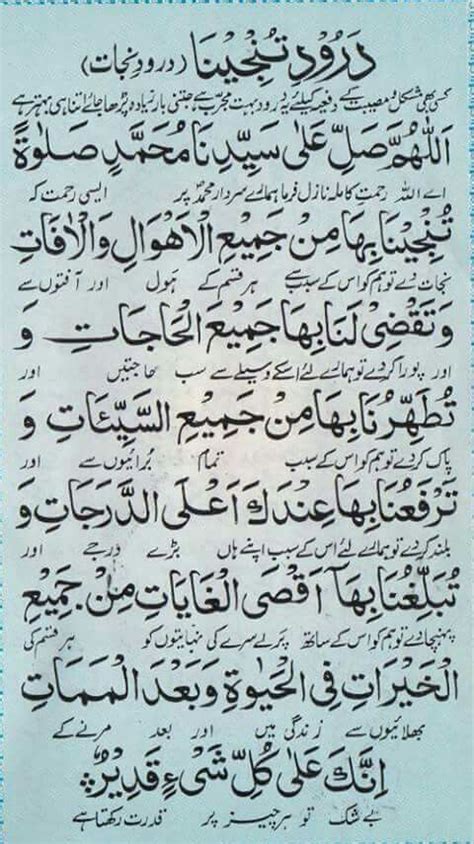 دَرُوْدِ تُنْجِيْنَا (درودِ نجات)
کسی بھی مشکل و مصیبت کے دفعیہ کیلئے یہ درود بہت مجرب ہے جتنی بار زیادہ پڑھا جائے اتنا ہی بہتر ہے
اَللّٰهُمَّ صَلِّ عَلٰى سَيِّدِنَا مُحَمَّدٍ صَلٰوةً
اے اللہ رحمتِ کاملہ نازل فرما ہمارے سردار محمدؐ پر ایسی رحمت کہ
تُنْجِيْنَا بِهَا مِنْ جَمِيْعِ الْاَهْوَالِ وَالْاٰفَاتِ
نجات دے تو ہم کو اس کے سبب سے ہر قسم کے ہول اور آفتوں سے
وَتَقْضِىْ لَنَا بِهَا جَمِيْعَ الْحَاجَاتِ وَ
اور پورا کر دے تو ہمارے لئے اسکے وسیلے سے سب حاجتیں اور
تُطَهِّرُنَا بِهَا مِنْ جَمِيْعِ السَّيِّئَاتِ وَ
پاک کر دے تو ہم کو اس کے سبب تمام برائیوں سے اور
تَرْفَعُنَا بِهَا عِنْدَكَ اَعْلَى الدَّرَجَاتِ وَ
بلند کر دے تو ہمارے لئے اس کے سبب اپنے ہاں بڑے درجے اور
تُبَلِّغُنَا بِهَآ اَقْصَى الْغَايَاتِ مِنْ جَمِيْعِ
پہنچا دے تو ہم کو اس کے ساتھ پرلے سرے کی نہایتوں کو ہر قسم کی
الْخَيْرَاتِ فِى الْحَيٰوةِ وَبَعْدَ الْمَمَاتِ
بھلائیوں سے زندگی میں اور بعد مرنے کے
اِنَّكَ عَلٰى كُلِّ شَىْءٍ قَدِيْرٌ
بے شک تو ہر چیز پر قدرت رکھتا ہے